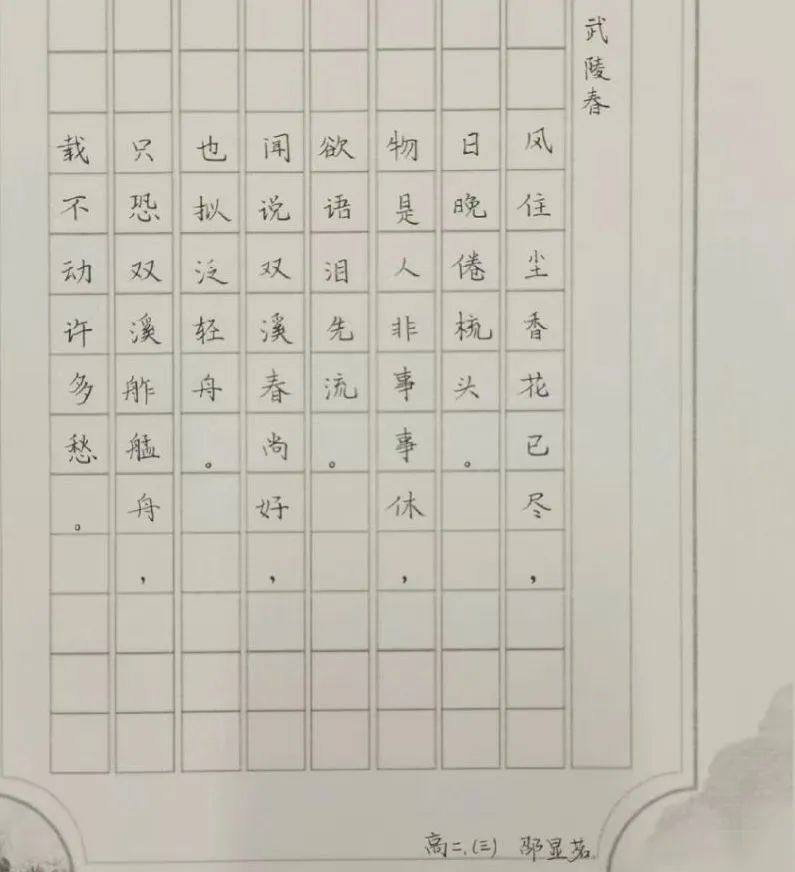 武陵春
风住尘香花已尽，
日晚倦梳头。
物是人非事事休，
欲语泪先流。
闻说双溪春尚好，
也拟泛轻舟。
只恐双溪舴艋舟，
载不动许多愁。
高二.(三) 邵显茗